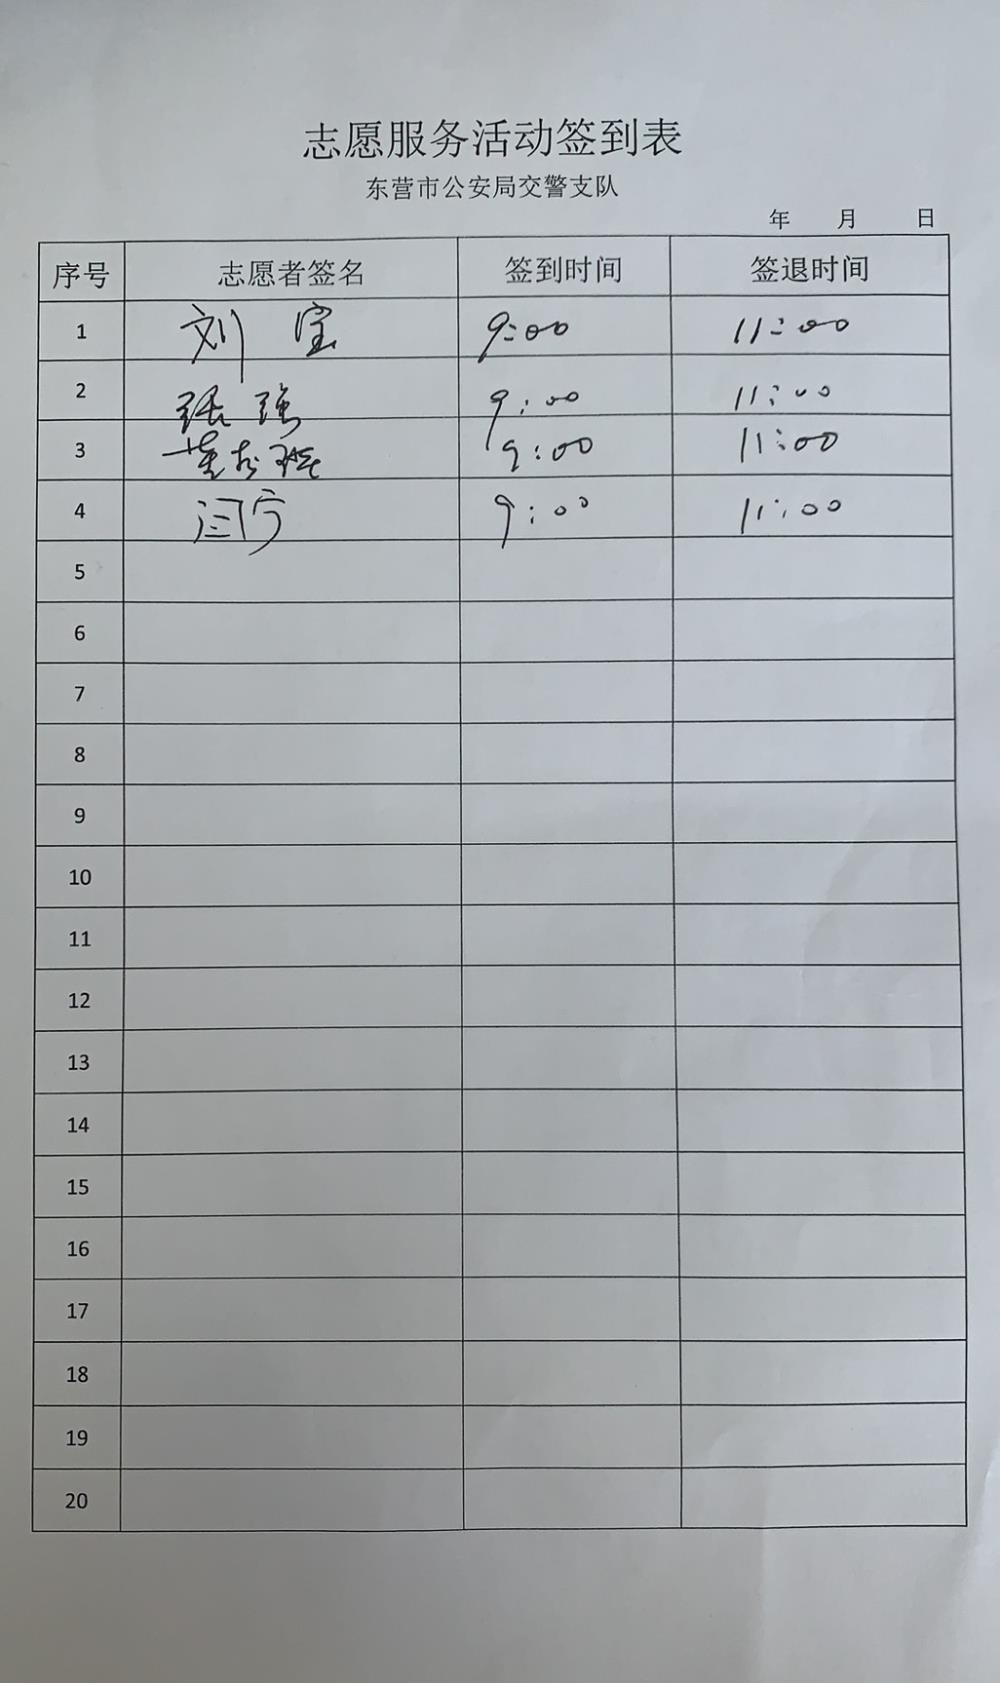 志愿服务活动签到表
东营市公安局交警支队
年 月 日
序号 志愿者签名 签到时间 签退时间
1 刘宝 9:00 11:00
2 张强 9:00 11:00
3 9:00 11:00
4 闫宁 9:00 11:00
5
6
7
8
9
10
11
12
13
14
15
16
17
18
19
20